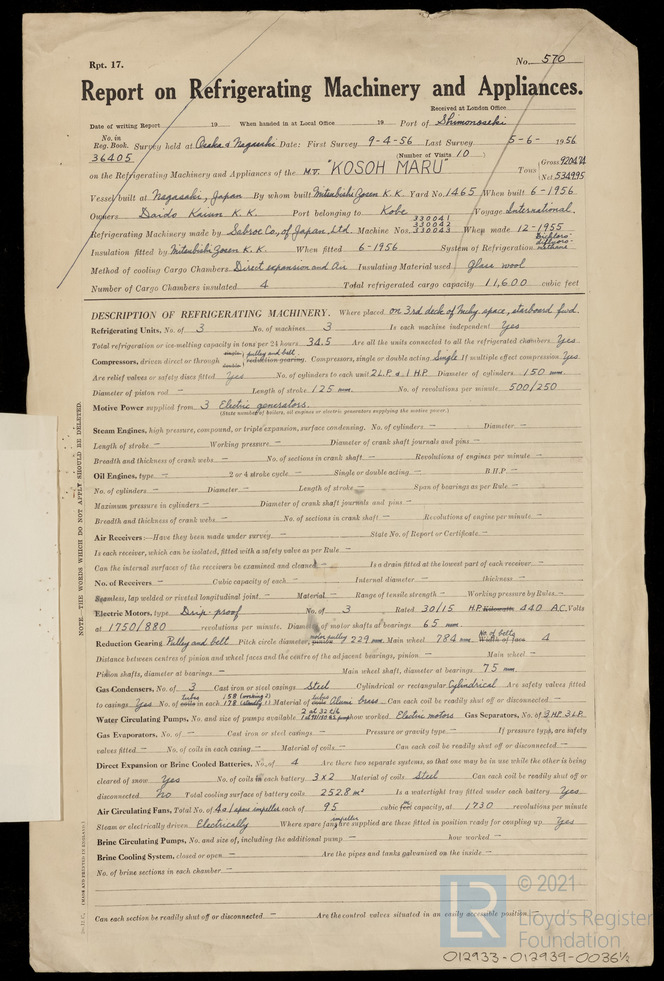 Rpt. 17.
No. 570
Report on Refrigerating Machinery and Appliances.
Received at London Office
Date of writing Report 19 When handed in at Local Office 19 Port of Shimonoseki
No. in Reg. Book. Survey held at Osaka & Nagasaki Date: First Survey 9-4-56 Last Survey 5-6-1956
36405 (Number of Visits 10)
on the Refrigerating Machinery and Appliances of the M.T. "KOSOH MARU" Tons Gross 9204.74 Net 5349.95
Vessel built at Nagasaki, Japan By whom built Mitsubishi Zosen K.K. Yard No. 1465 When built 6-1956
Owners Daido Kaiun K.K. Port belonging to Kobe Voyage International.
Refrigerating Machinery made by Sabroe Co, of Japan, Ltd. Machine Nos. 330041 330042 330043 When made 12-1955
Insulation fitted by Mitsubishi Zosen K.K. When fitted 6-1956 System of Refrigeration Dichloro-difluoro-methane
Method of cooling Cargo Chambers Direct expansion and Air Insulating Material used Glass wool
Number of Cargo Chambers insulated 4 Total refrigerated cargo capacity 11,600 cubic feet
DESCRIPTION OF REFRIGERATING MACHINERY. Where placed on 3rd deck of Mchy. space, starboard fwd.
Refrigerating Units, No. of 3 No. of machines 3 Is each machine independent Yes
Total refrigeration or ice-melting capacity in tons per 24 hours 34.5 Are all the units connected to all the refrigerated chambers Yes
Compressors, driven direct or through single double reduction gearing. pulley and belt Compressors, single or double acting Single If multiple effect compression Yes
Are relief valves or safety discs fitted Yes No. of cylinders to each unit 2 L.P. & 1 H.P Diameter of cylinders 150 mm.
Diameter of piston rod - Length of stroke 125 mm. No. of revolutions per minute 500/250
Motive Power supplied from 3 Electric generators.
(State number of boilers, oil engines or electric generators supplying the motive power.)
Steam Engines, high pressure, compound, or triple expansion, surface condensing. No. of cylinders - Diameter -
Length of stroke - Working pressure - Diameter of crank shaft journals and pins -
Breadth and thickness of crank webs - No. of sections in crank shaft - Revolutions of engines per minute -
Oil Engines, type - 2 or 4 stroke cycle - Single or double acting. - B.H.P -
No. of cylinders - Diameter - Length of stroke - Span of bearings as per Rule -
Maximum pressure in cylinders - Diameter of crank shaft journals and pins -
Breadth and thickness of crank webs - No. of sections in crank shaft - Revolutions of engine per minute -
Air Receivers:—Have they been made under survey - State No. of Report or Certificate -
Is each receiver, which can be isolated, fitted with a safety valve as per Rule -
Can the internal surfaces of the receivers be examined and cleaned - Is a drain fitted at the lowest part of each receiver -
No. of Receivers - Cubic capacity of each - Internal diameter - thickness -
Seamless, lap welded or riveted longitudinal joint - Material - Range of tensile strength - Working pressure by Rules -
Electric Motors, type Drip-proof No. of 3 Rated 30/15 H.P. Kilowatts 440 A.C. Volts
at 1750/880 revolutions per minute. Diameter of motor shafts at bearings 65 mm.
Reduction Gearing Pulley and belt Pitch circle diameter, pinion motor pulley 229 mm. Main wheel 784 mm. Width of face No. of belts 4
Distance between centres of pinion and wheel faces and the centre of the adjacent bearings, pinion - Main wheel -
Pinion shafts, diameter at bearings - Main wheel shaft, diameter at bearings 75 mm.
Gas Condensers, No. of 3 Cast iron or steel casings Steel Cylindrical or rectangular Cylindrical Are safety valves fitted
to casings Yes No. of coils tubes in each 158 (working 2) 178 (standby 1) Material of coils tubes Alumi brass Can each coil be readily shut off or disconnected -
Water Circulating Pumps, No. and size of pumps available how worked Electric motors Gas Separators, No. of 3 H.P. 3 L.P.
Gas Evaporators, No. of - Cast iron or steel casings - Pressure or gravity type - If pressure type, are safety
valves fitted - No. of coils in each casing - Material of coils - Can each coil be readily shut off or disconnected -
Direct Expansion or Brine Cooled Batteries, No. of 4 Are there two separate systems, so that one may be in use while the other is being
cleared of snow Yes No. of coils in each battery 3 x 2 Material of coils Steel Can each coil be readily shut off or
disconnected No Total cooling surface of battery coils 252.8 m² Is a watertight tray fitted under each battery Yes
Air Circulating Fans, Total No. of 4 & 1 spare impeller each of 95 cubic capacity, at 1730 revolutions per minute
Steam or electrically driven Electrically Where spare fans impeller are supplied are these fitted in position ready for coupling up Yes
Brine Circulating Pumps, No. and size of, including the additional pump - how worked -
Brine Cooling System, closed or open - Are the pipes and tanks galvanised on the inside -
No. of brine sections in each chamber -
Can each section be readily shut off or disconnected - Are the control valves situated in an easily accessible position -
NOTE.—THE WORDS WHICH DO NOT APPLY SHOULD BE DELETED.
(MADE AND PRINTED IN ENGLAND.)
LR © 2021
Lloyd's Register
Foundation
012933-012939-0036½